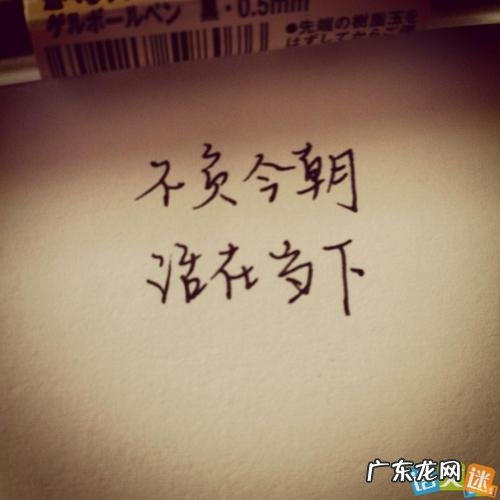 ゲルボールペン 黒・0.5mm
●先端の樹脂玉を
はずしてからご使
不负今朝
活在当下
广东龙网